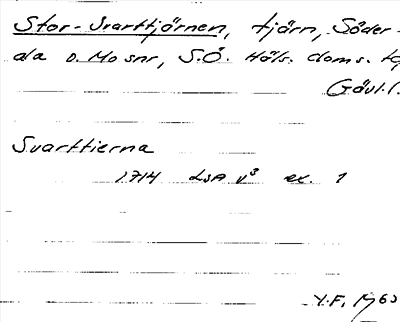 Stor-Svarttjärnen, tjärn, Söder-
ala o. Mo snr, S.Ö. Häls. doms.
Gävl.l.
Svarttierna
1714 LSA V³ ex. 1
Y.F. 1963